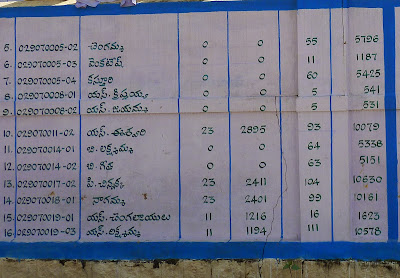 5. 029070005-02 చెంగమ్మ 0 0 55 5796
6. 029070005-03 వెంకటేష్ 0 0 11 1187
7. 029070005-04 కస్తూరి 0 0 60 5425
8. 029070008-01 యస్. క్రిష్ణయ్య 0 0 5 541
9. 029070008-02 యస్. జయమ్మ 0 0 5 531
10. 029070011-02 యస్. ఈశ్వరి 23 2895 93 10079
11. 029070014-01 జి. లక్ష్మమ్మ 0 0 64 5338
12. 029070014-02 జి. గీత 0 0 63 5151
13. 029070017-02 పి. చిన్నక్క 23 2411 104 10630
14. 029070018-01 నాగమ్మ 23 2401 99 10161
15. 029070019-01 యస్. చెంగలాయులు 11 1216 16 1623
16. 029070019-03 యస్. లక్ష్మమ్మ 11 1194 111 10578